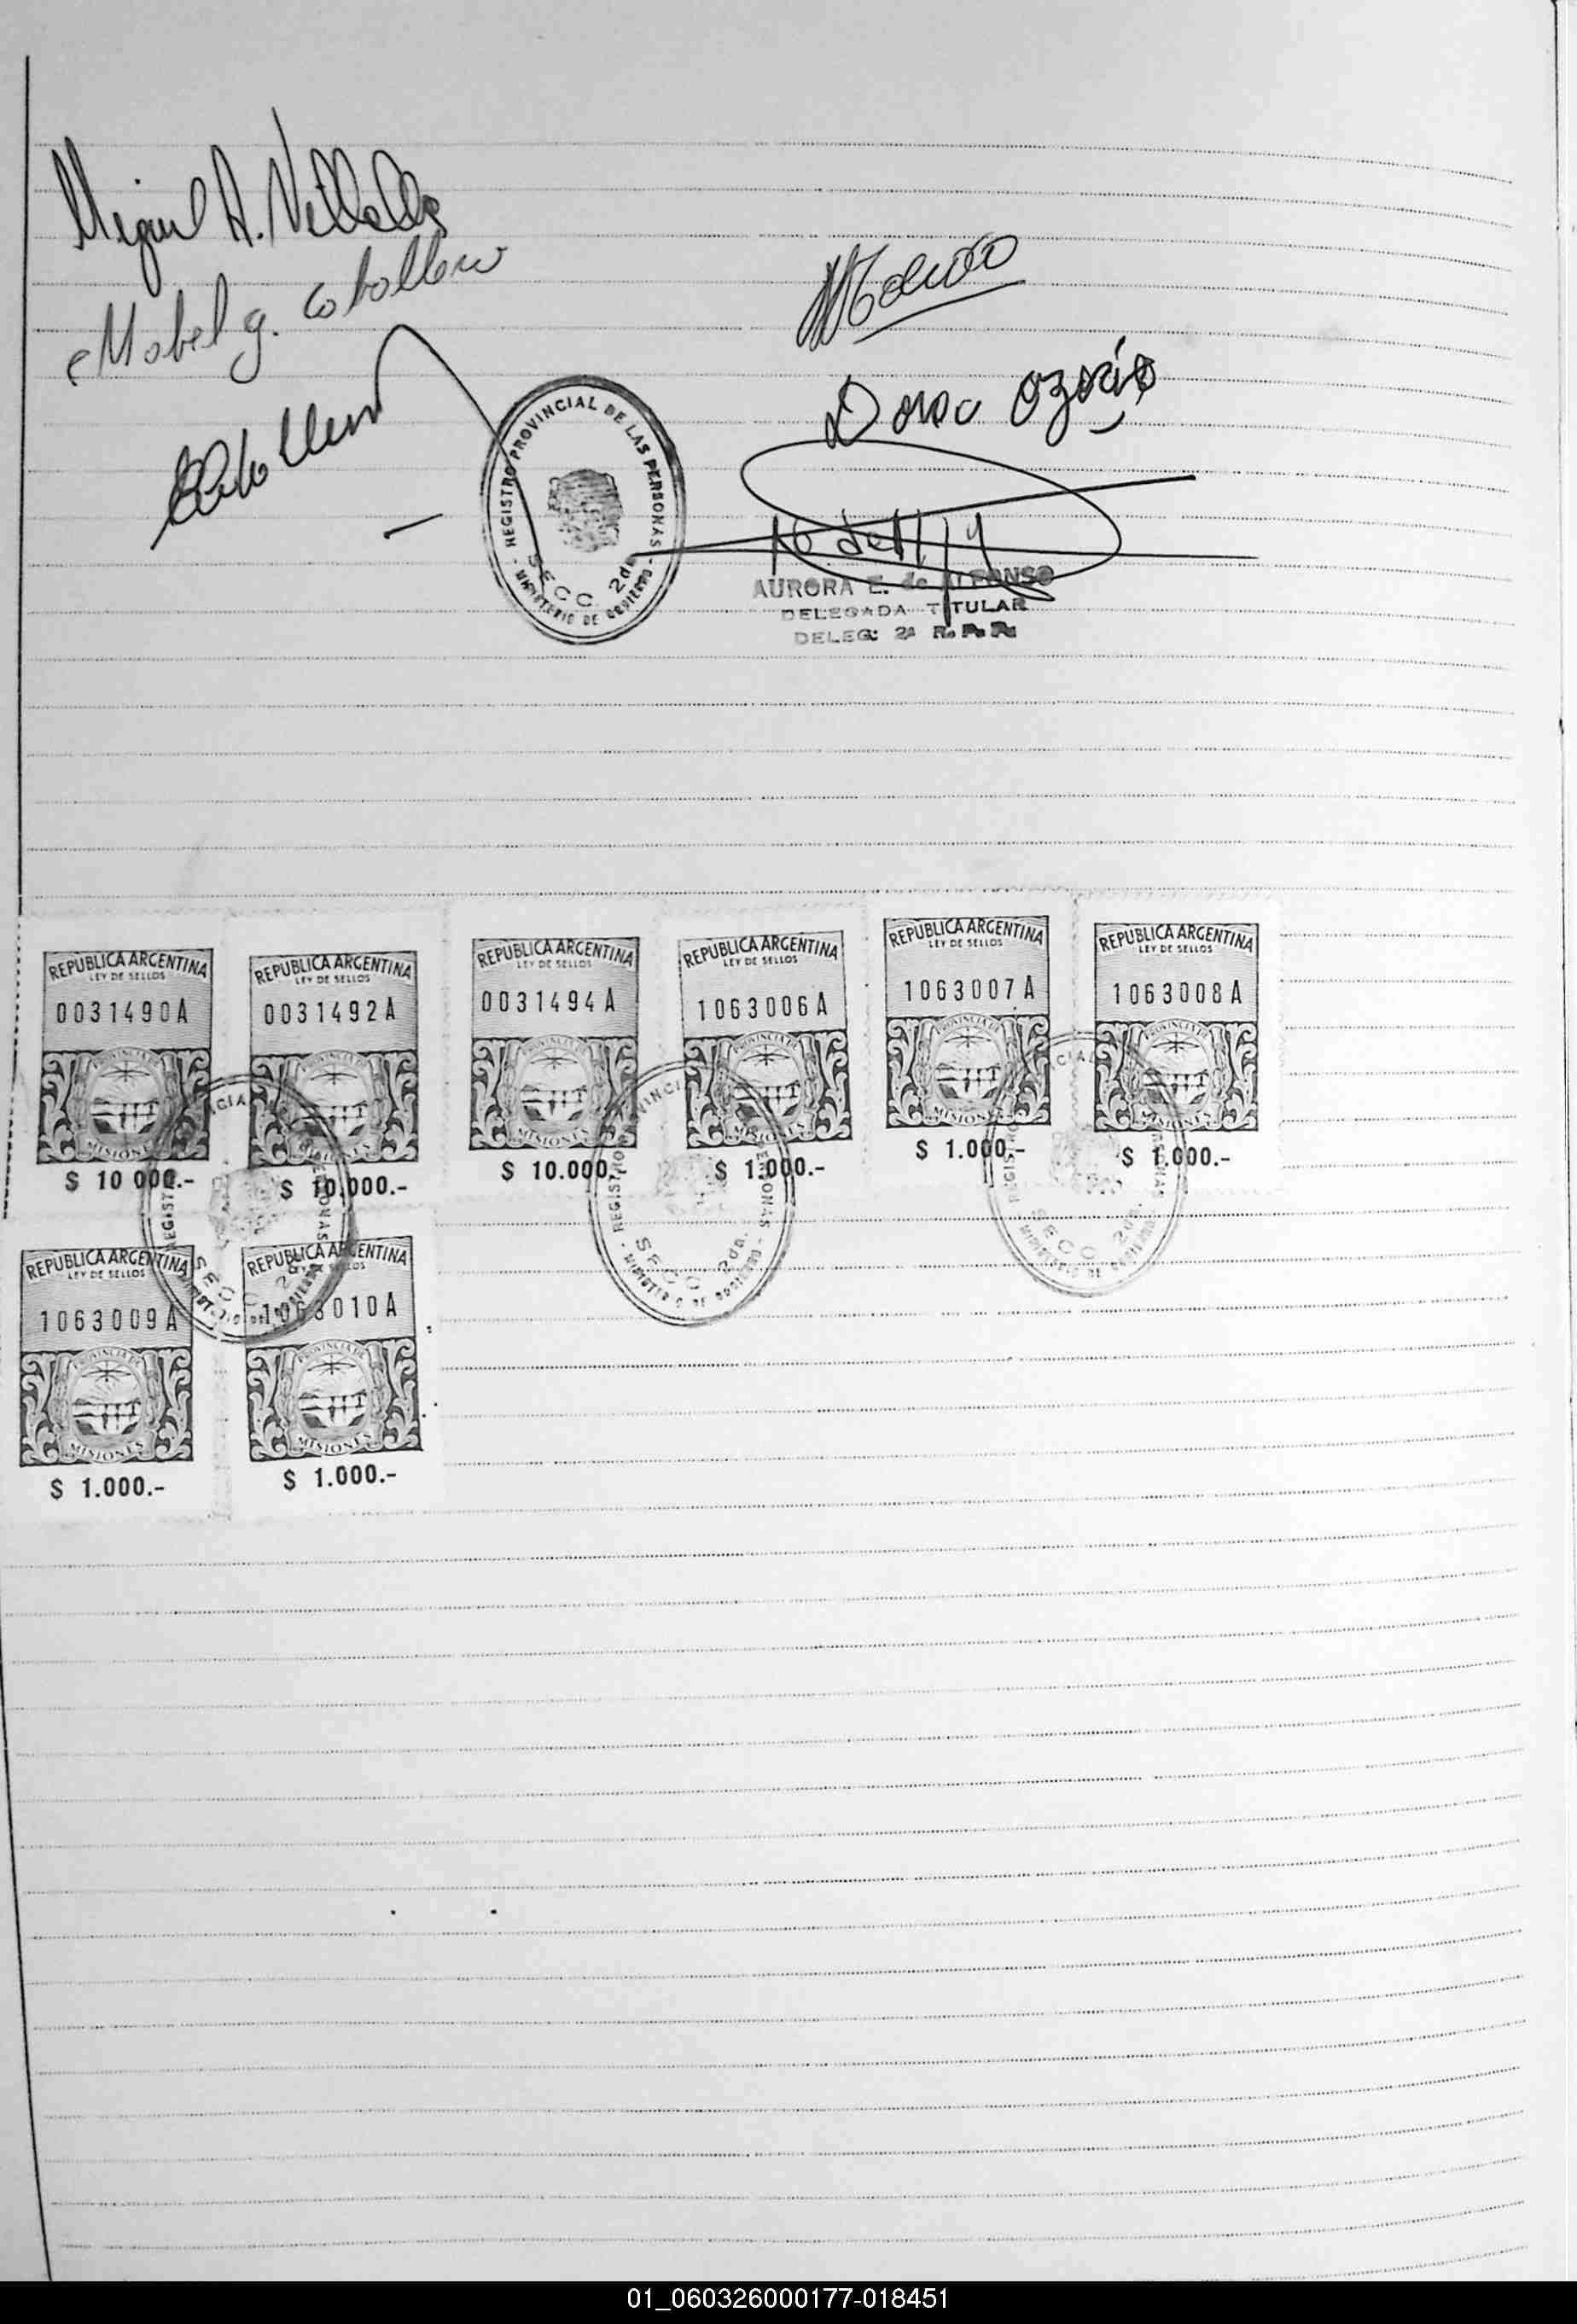 Miguel A. Villalba
Mabel g. Caballero
Dora Ozorio
REGISTRO PROVINCIAL DE LAS PERSONAS
SECC 2da
- MINISTERIO DE GOBIERNO -
AURORA E. de ALFONSO
DELEGADA TITULAR
DELEG: 2ª R. P. P.
REPUBLICA ARGENTINA
LEY DE SELLOS
0031490A
PROVINCIA DE
MISIONES
$ 10 000.-
REPUBLICA ARGENTINA
LEY DE SELLOS
0031492A
$ 10.000.-
REPUBLICA ARGENTINA
LEY DE SELLOS
0031494A
$ 10.000.-
REPUBLICA ARGENTINA
LEY DE SELLOS
1063006A
PROVINCIA DE
MISIONES
$ 1.000.-
REPUBLICA ARGENTINA
LEY DE SELLOS
1063007A
PROVINCIA DE
MISIONES
$ 1.000.-
REPUBLICA ARGENTINA
LEY DE SELLOS
1063008A
PROVINCIA DE
MISIONES
$ 1.000.-
REPUBLICA ARGENTINA
LEY DE SELLOS
1063009A
PROVINCIA DE
MISIONES
$ 1.000.-
REPUBLICA ARGENTINA
LEY DE SELLOS
1063010A
PROVINCIA DE
MISIONES
$ 1.000.-
01_060326000177-018451